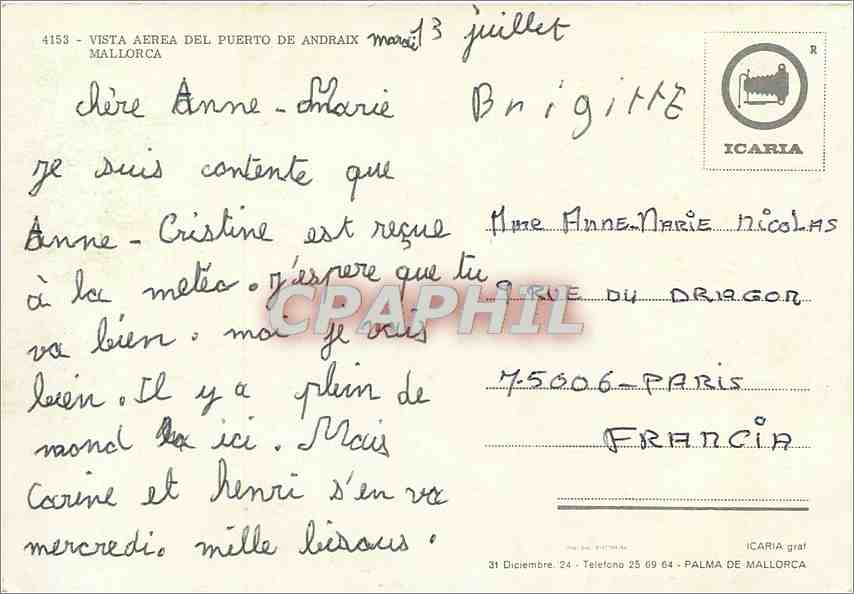 4153 - VISTA AEREA DEL PUERTO DE ANDRAIX
MALLORCA
mardi 13 juillet
chère Anne-Marie
je suis contente que
Anne-Cristine est reçue
à la météo. j'espere que tu
va bien. moi je vais
bien. Il y a plein de
mond ici. Mais
Carine et henri s'en va
mercredi. mille bisous.
BrigittE
R
ICARIA
Mme ANNE-MARIE NICOLAS
9 RUE DU DRAGON
75006-PARIS
FRANCIA
CPAPHIL
ICARIA graf
31 Diciembre. 24 - Telefono 25 69 64 - PALMA DE MALLORCA